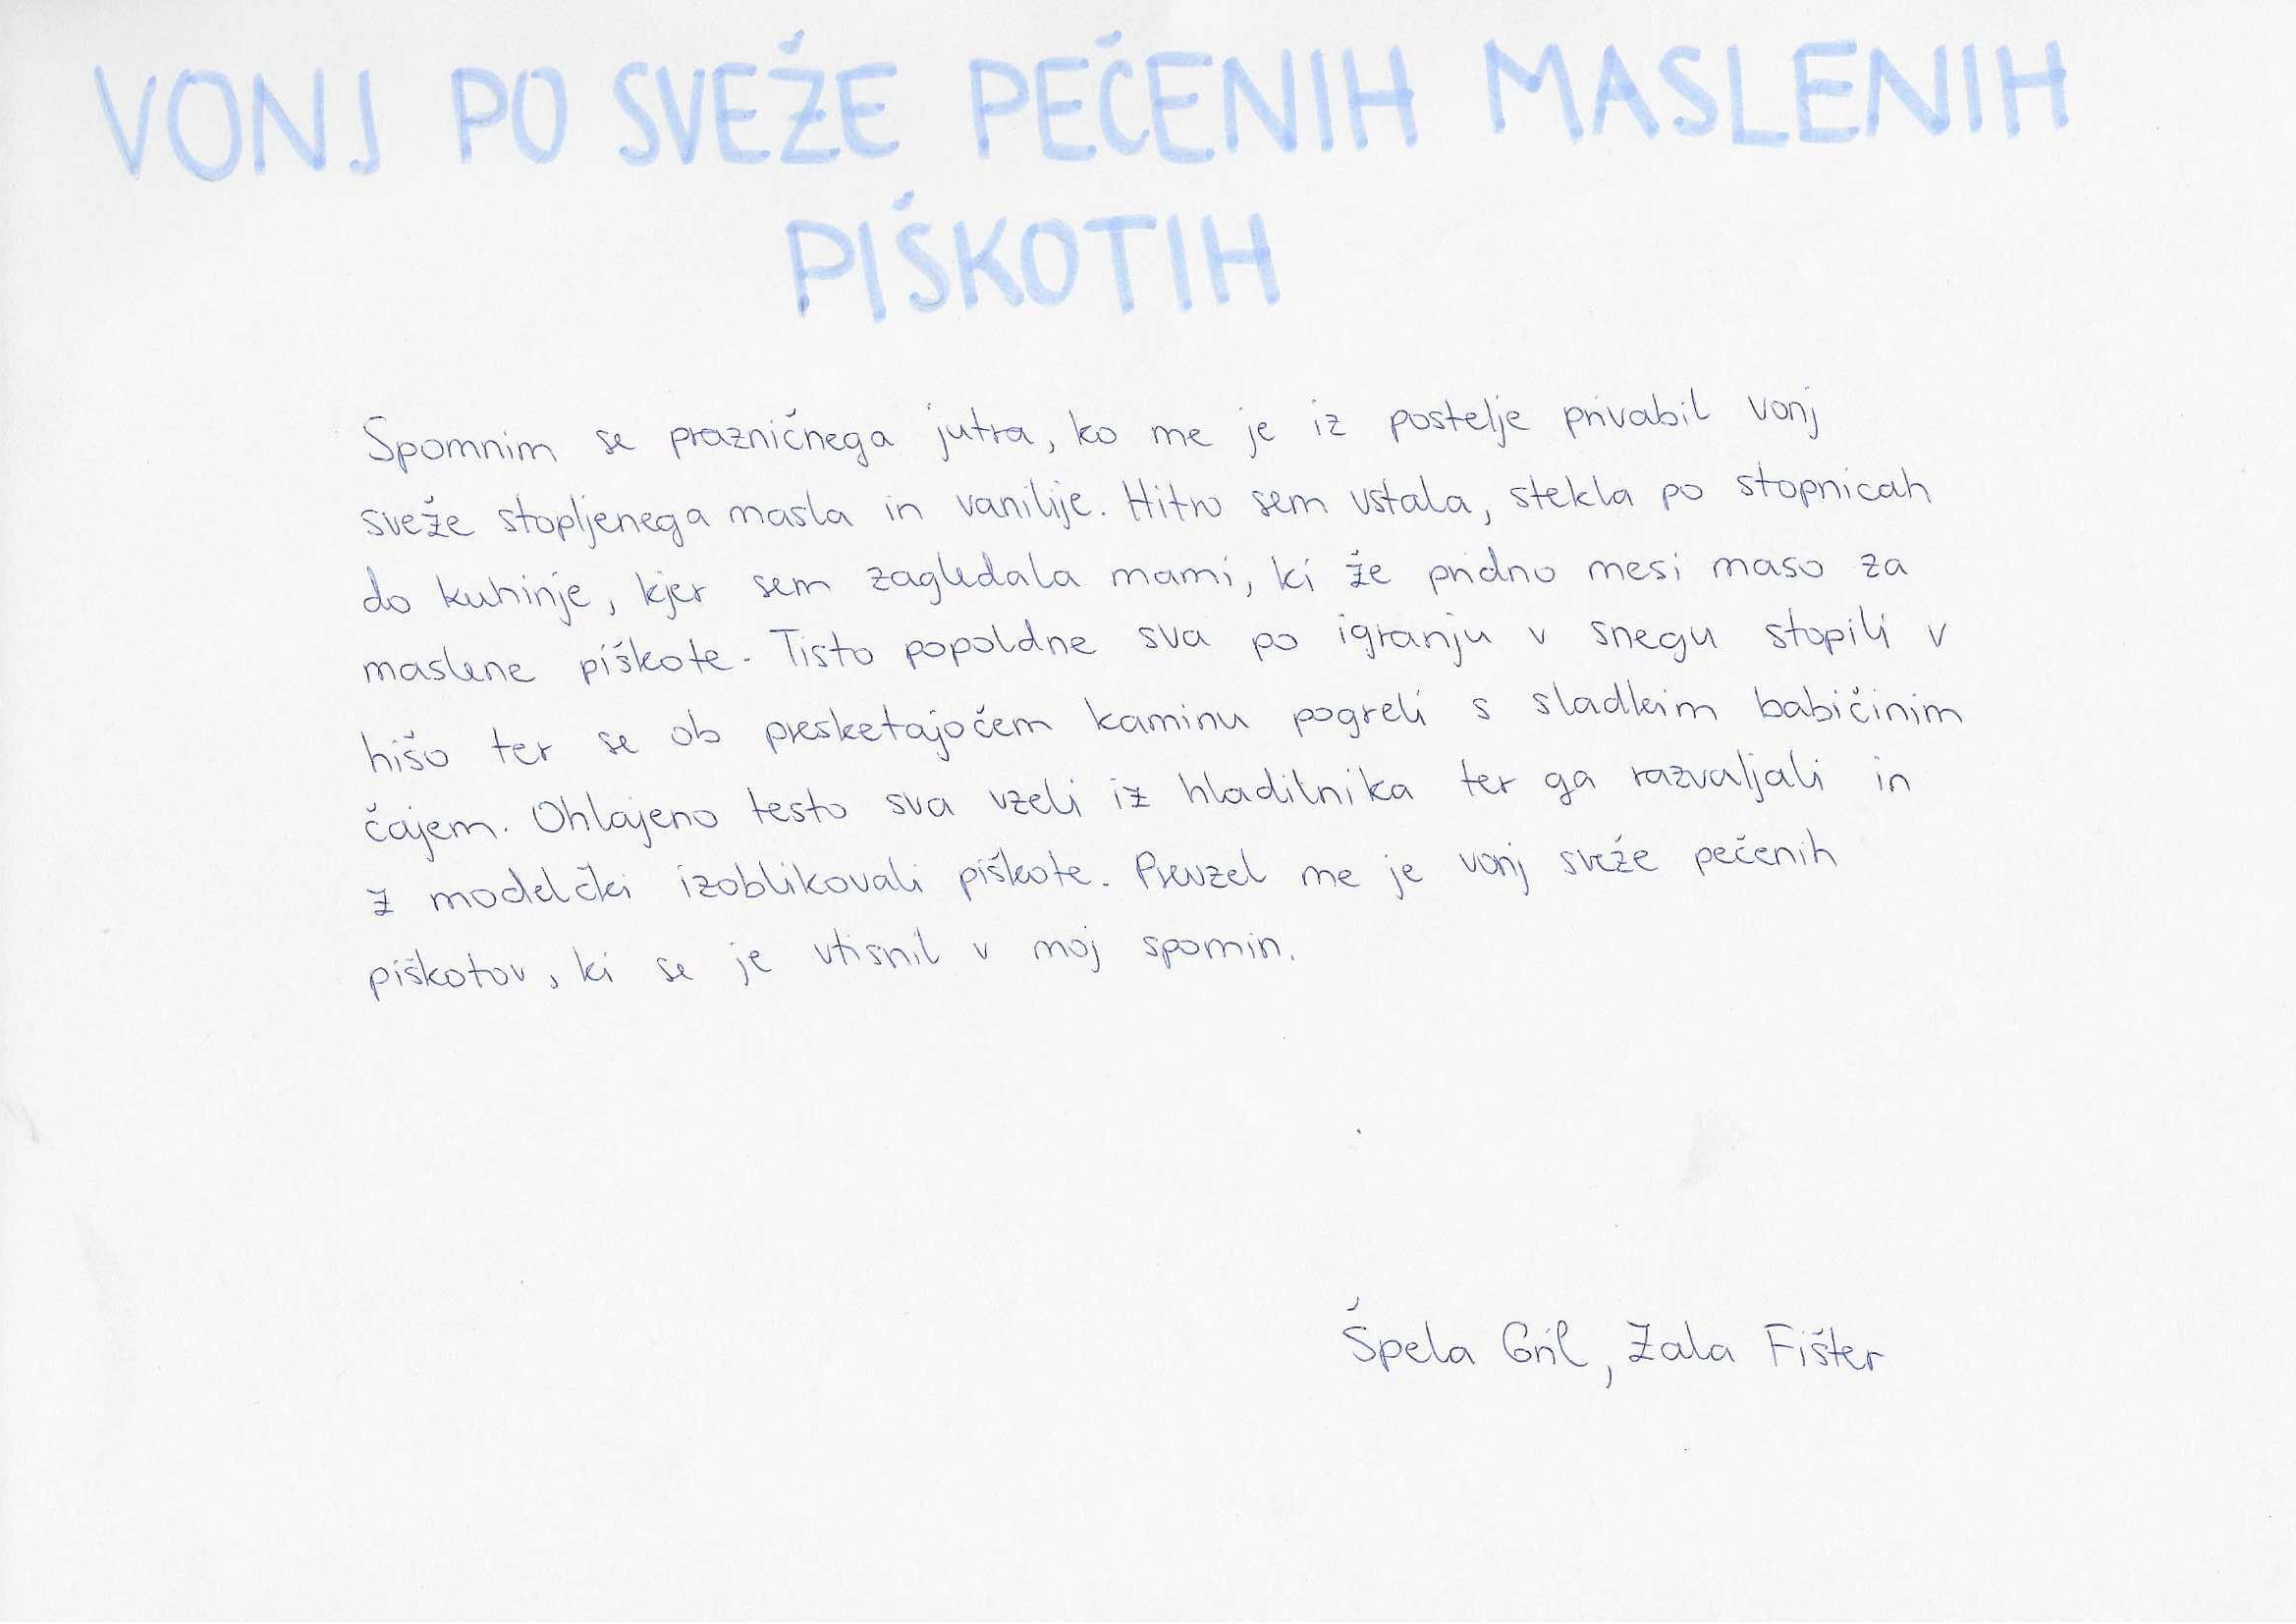 VONJ PO SVEŽE PEČENIH MASLENIH
PIŠKOTIH
Spomnim se prazničnega jutra, ko me je iz postelje privabil vonj
sveže stopljenega masla in vanilije. Hitro sem vstala, stekla po stopnicah
do kuhinje, kjer sem zagledala mami, ki že pridno mesi maso za
maslene piškote. Tisto popoldne sva po igranju v snegu stopili v
hišo ter se ob presketajočem kaminu pogreli s sladkim babičinim
čajem. Ohlajeno testo sva vzeli iz hladilnika ter ga razvaljali in
z modelčki izoblikovali piškote. Prevzel me je vonj sveže pečenih
piškotov, ki se je vtisnil v moj spomin.
Špela Gril, Zala Fišter